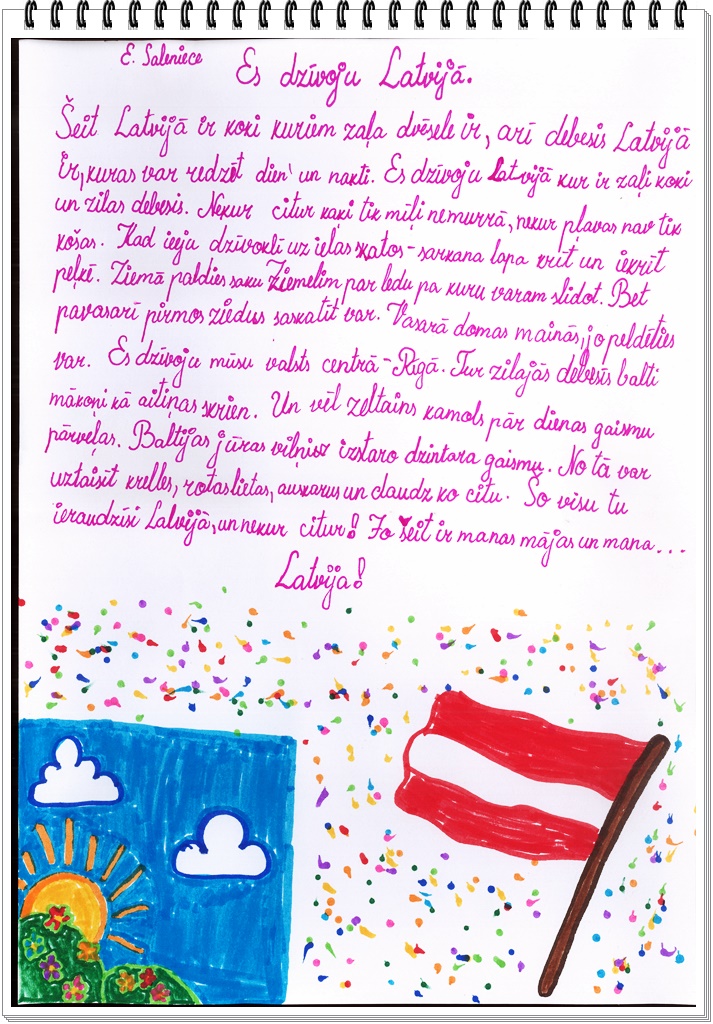 E. Saleniece
Es dzīvoju Latvijā.
Šeit Latvijā ir koki kuriem zaļa dvēsele ir, arī debesis Latvijā
ir, kuras var redzēt dien' un nakti. Es dzīvoju Latvijā kur ir zaļi koki
un zilas debesis. Nekur citur kaķi tik mīļi nemurrā, nekur pļavas nav tik
košas. Kad ieeju dzīvoklī uz ielas skatos - sarkana lapa krīt un iekrīt
peļķē. Ziemā paldies saku Ziemelim par ledu pa kuru varam slidot. Bet
pavasarī pirmos ziedus saskatīt var. Vasarā domas mainās, jo peldēties
var. Es dzīvoju mūsu valsts centrā - Rīgā. Tur zilajās debesīs balti
mākoņi kā aitiņas skrien. Un vēl zeltains kamols pār dienas gaismu
pārveļas. Baltijas jūras viļņos izstaro dzintara gaismu. No tā var
uztaisīt krelles, rotaslietas, auskarus un daudz ko citu. So visu tu
ieraudzīsi Latvijā, un nekur citur! Jo šeit ir manas mājas un mana...
Latvija!